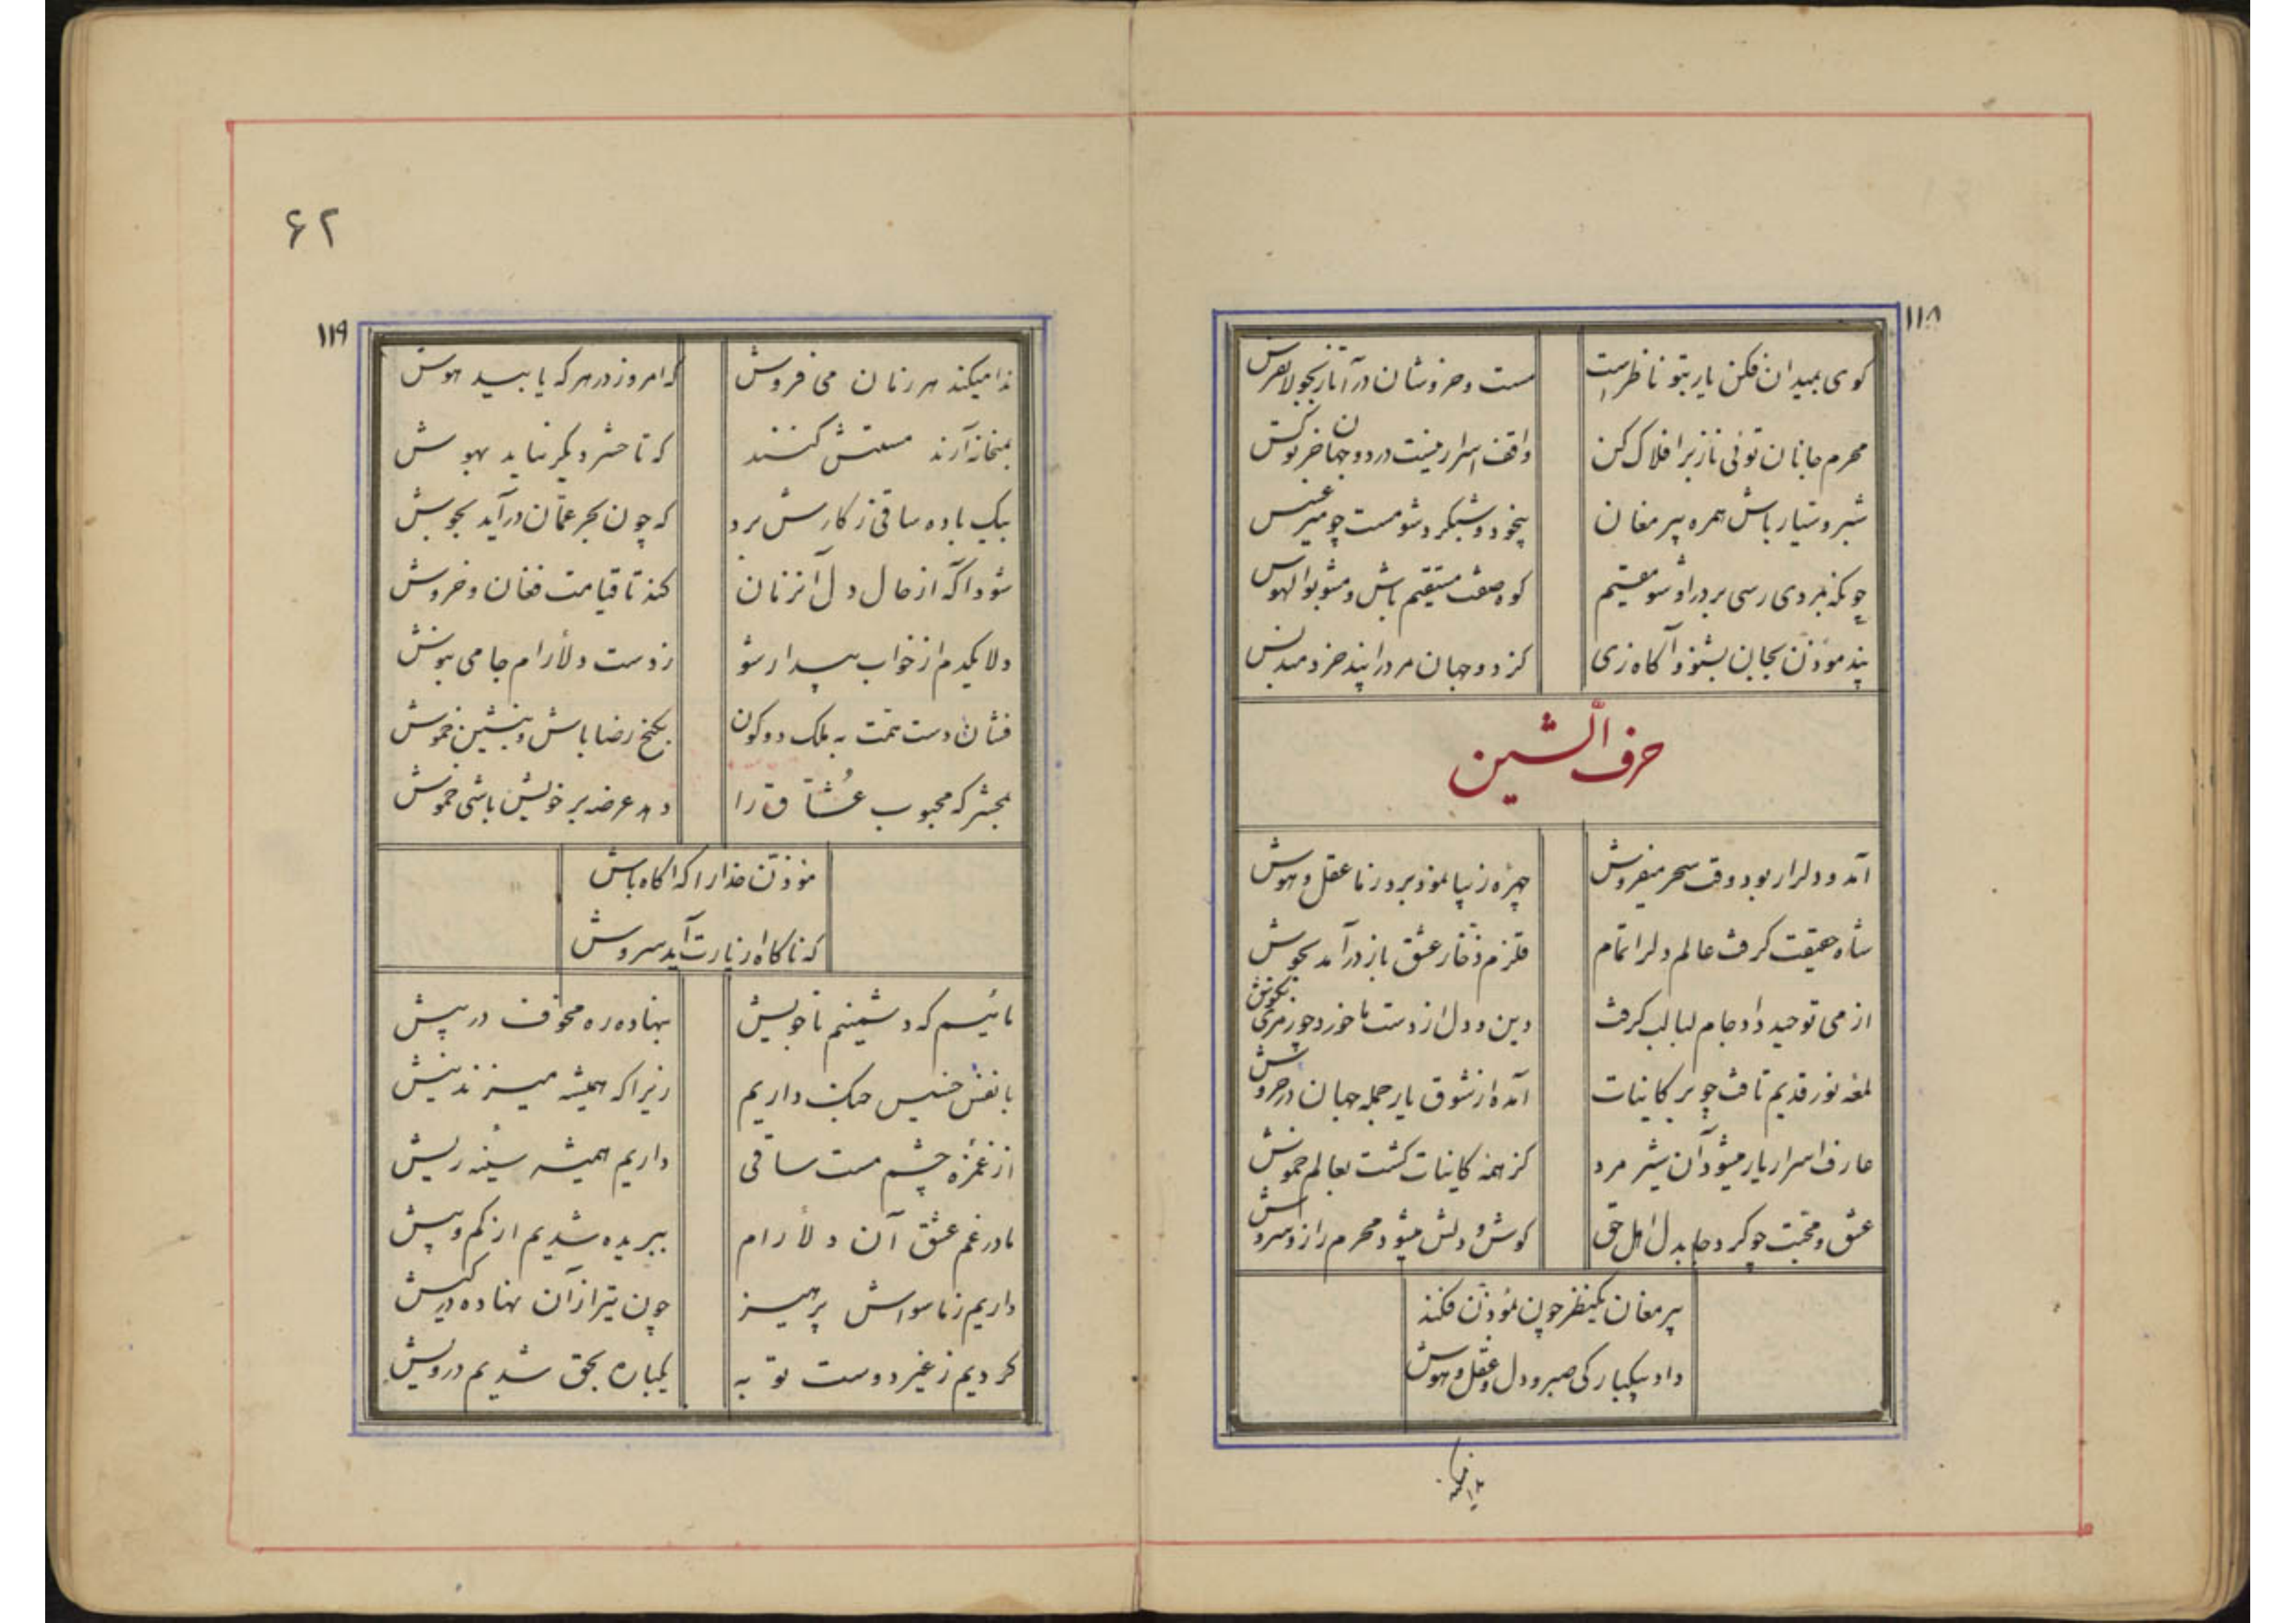 ۱۱۸
کوی بمیدان فکن یار بتو ناظر است
مست و خروشان درآ تا ز بجولا فرس
محرم جانان توئی ناز بر افلاک کن
واقف اسرار نیست در دو جهان جز تو کس
شبرو و عیار باش همره پیر مغان
بیخود و شبکرد شو مست چو میر عسس
چونکه بمردی رسی بر در او شو مقیم
کوه صفت مستقیم باش و مشو بوالهوس
پند موذن بجان بشنو و آکاه زی
کز دو جهان مرد را پند خردمند بس
حرف الشین
آمد و دلرا ربود وقت سحر میفروش
چهره زیبا نمود برد ز ما عقل و هوش
شاه حقیقت کرفت عالم دلرا تمام
قلزم ذخار عشق باز درآمد بجوش
از می توحید داد جام لبالب کرفت
دین و دل از دست ما خورد چو زمزمی بکوش
لمعه نور قدیم تافت چو بر کاینات
آمده از شوق یار جمله جهان در خروش
عارف اسرار یار میشود آن شیر مرد
کز همه کاینات کشت بعالم خموش
عشق و محبت چو کرد جا بدل اهل حق
کوش و دلش میشود محرم راز و سروش
پیر مغان یکنظر چون موذن فکند
داد بیکبارکی صبر و دل و عقل و هوش
ندا میکند
۶۲
۱۱۹
ندا میکند هر زمان می فروش
که امروز در هر که یابید هوش
بمیخانه آرند مستش کنند
که تا حشر دیگر نیاید بهوش
بیک باده ساقی ز کارش برد
که چون بحر عمّان درآید بجوش
شود آکه از حال دل آنزمان
کند تا قیامت فغان و خروش
دلا یکدم از خواب بیدار شو
ز دست دلارام جامی بنوش
فشان دست همت به ملک دو کون
بکنج رضا باش و بنشین خموش
بمحشر که محبوب عُشّاق را
دهد عرضه بر خویش باشی خموش
موذن خدا را که آکاه باش
که ناکاه از یارت آید سروش
مائیم که دشمنیم با خویش
بنهاده ره مخوف در پیش
با نفس خسیس جنک داریم
زیرا که همیشه میزند نیش
از غمزه چشم مست ساقی
داریم همیشه سینه ریش
ما در غم عشق آن دلارام
ببریده شدیم از کم و بیش
داریم ز ماسواش پرهیز
چون تیر از آن نهاده در کیش
کردیم ز غیر دوست توبه
یکباره بحق شدیم درویش